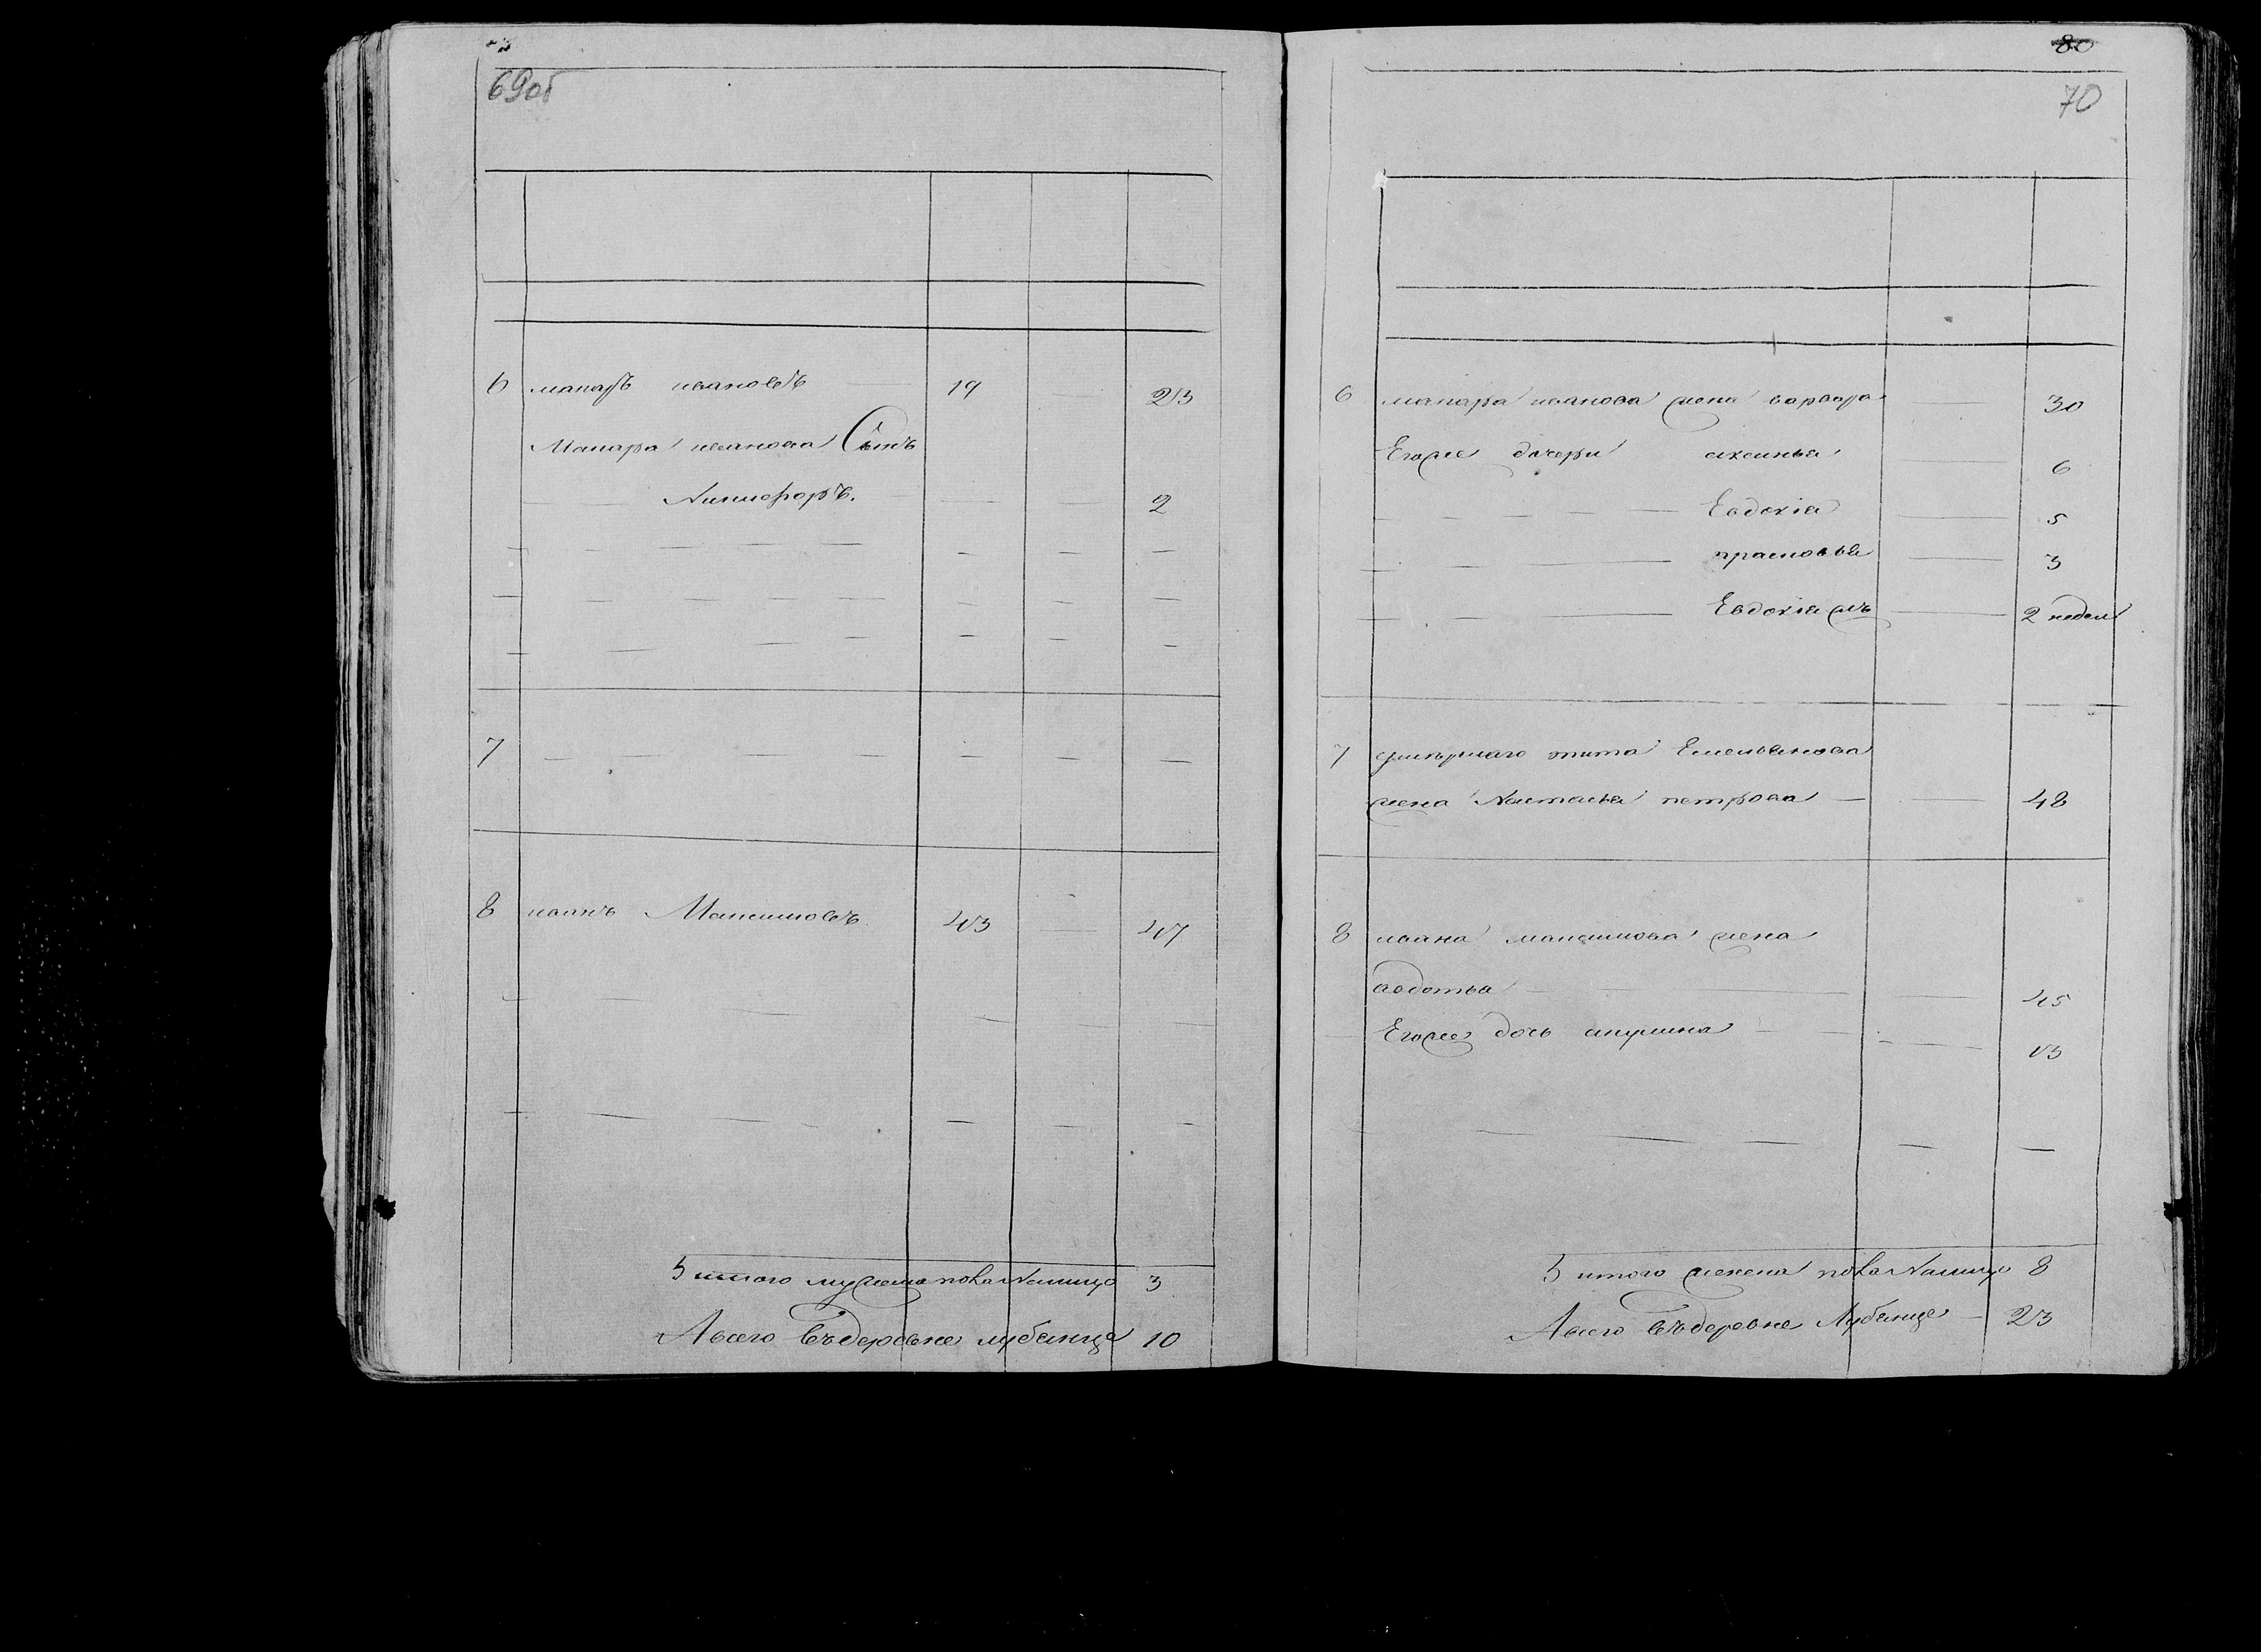 69об
6 макаръ ивановъ 19 23
Макара иванова Сынъ
Никифоръ. 2
7
8 иванъ Максимовъ 43 47
итого мужеска налицо 3
А всего въ деревне лубенце 10
80
70
6 макара иванова жена варвара 30
Егоже дочери аксинья 6
Евдокія 5
прасковья 3
Евдокія жъ 2 недели
7 умершаго тита Емельянова
жена Настасья петрова 48
8 ивана максимова жена
авдотья 45
Егоже дочь акулина 13
итого женска налицо 8
А всего въ деревне Лубенце 23